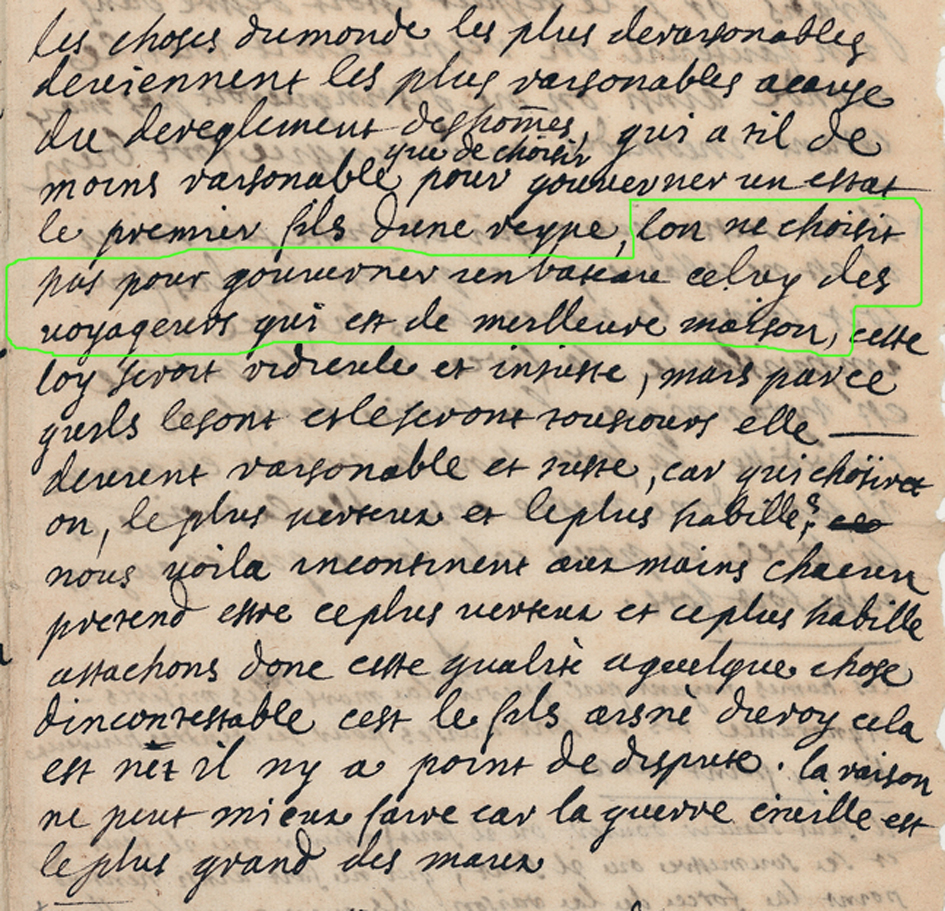 les choses du monde les plus deraisonables
deviennent les plus raisonables a cause
du dereglement des hom̄es, qui a til de
que de choisir
moins raisonable pour gouverner un estat
le premier fils dune reyne, lon ne choisit
pas pour gouverner un bateau celuy des
voyageurs qui est de meilleure maison, cette
loy seroit ridicule et iniuste, mais parce
quils le sont et le seront tousiours elle
devient raisonable et iuste, car qui choisira t
on, le plus vertueux et le plus habille?
nous voila incontinent aux mains chacun
pretend estre ce plus vertueux et ce plus habille
attachons donc cette qualité a quelque chose
dincontestable cest le fils aisné du roy cela
est net il ny a point de dispute. la raison
ne peut mieux faire car la guerre civille est
le plus grand des maux